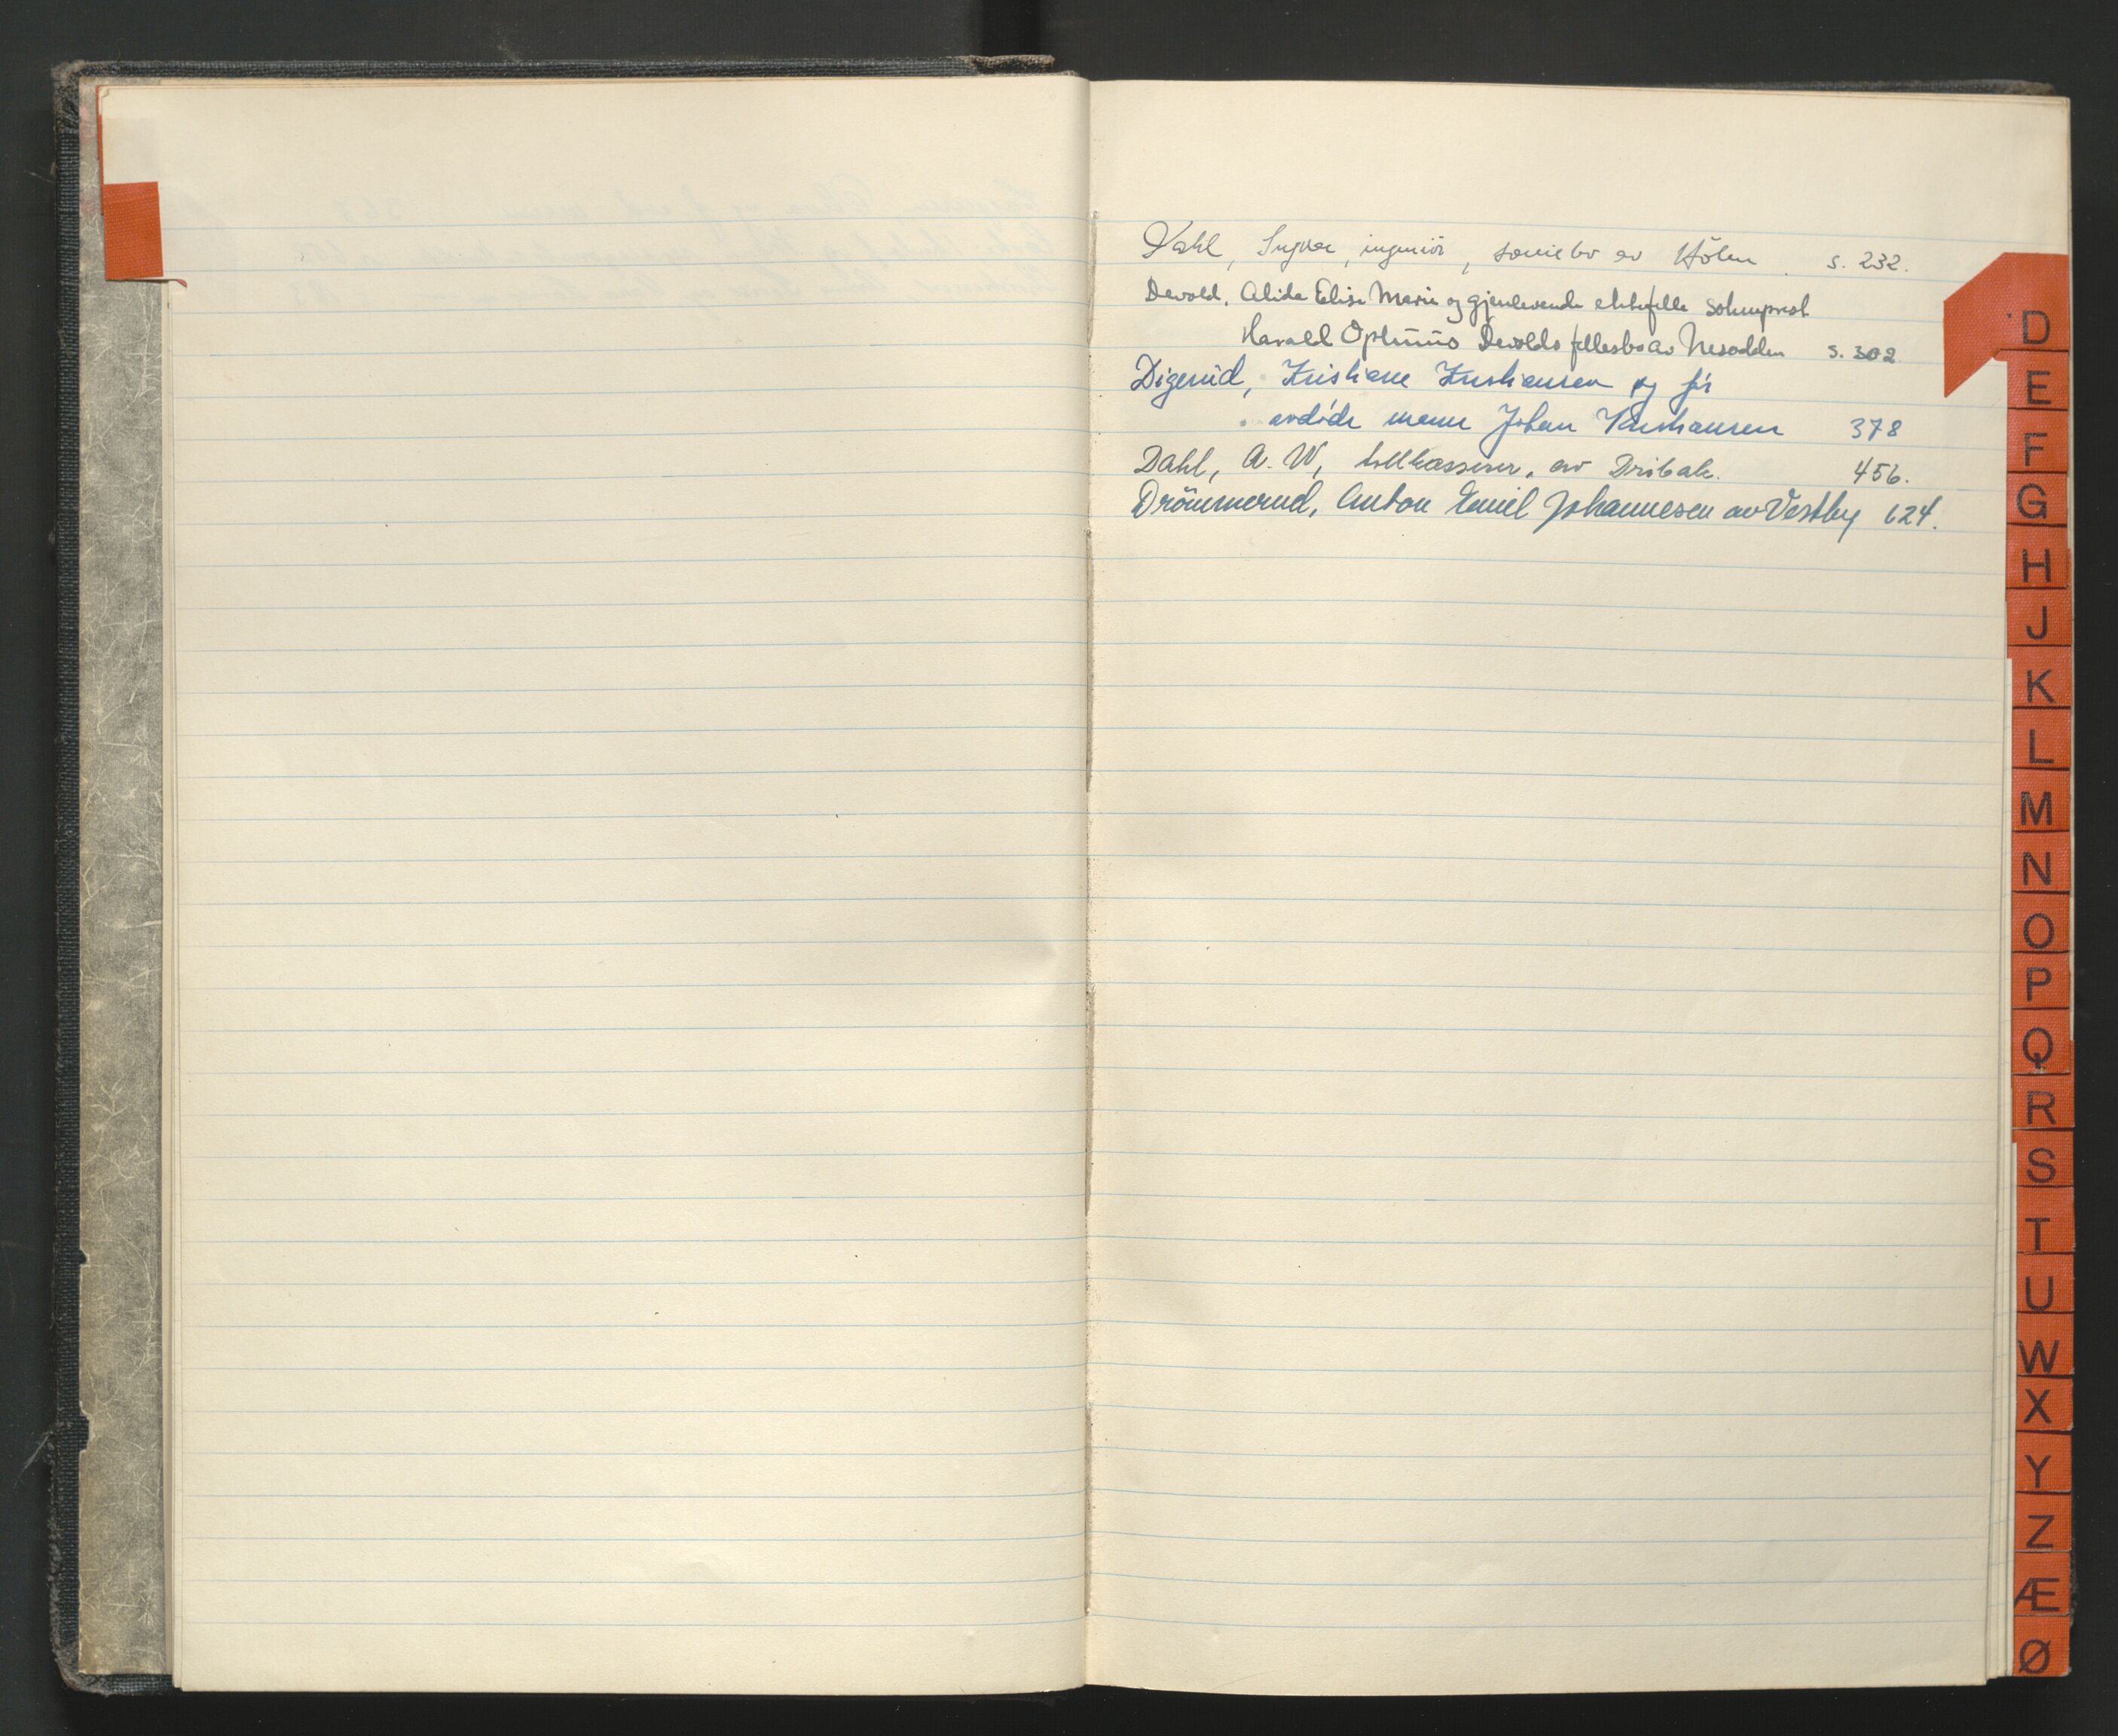 Dahl, Ingvar, ingeniör, særiebo av Hölen. s. 232.
Devold, Alida Elise Marie og gjenlevende ektefelle sokneprest
Harald Optimus Devolds fellesbo av Nesodden s. 302
Digerud, Kristiane Kristiansen og før
avdöde mann Johan Kristiansen 378
Dahl, A. W, tollkasserer, av Dröbak. 456.
Drömmerud, Anton Emil Johannesen av Vestby 624.
D
E
F
G
H
J
K
L
M
N
O
P
Q
R
S
T
U
W
X
Y
Z
Æ
Ø